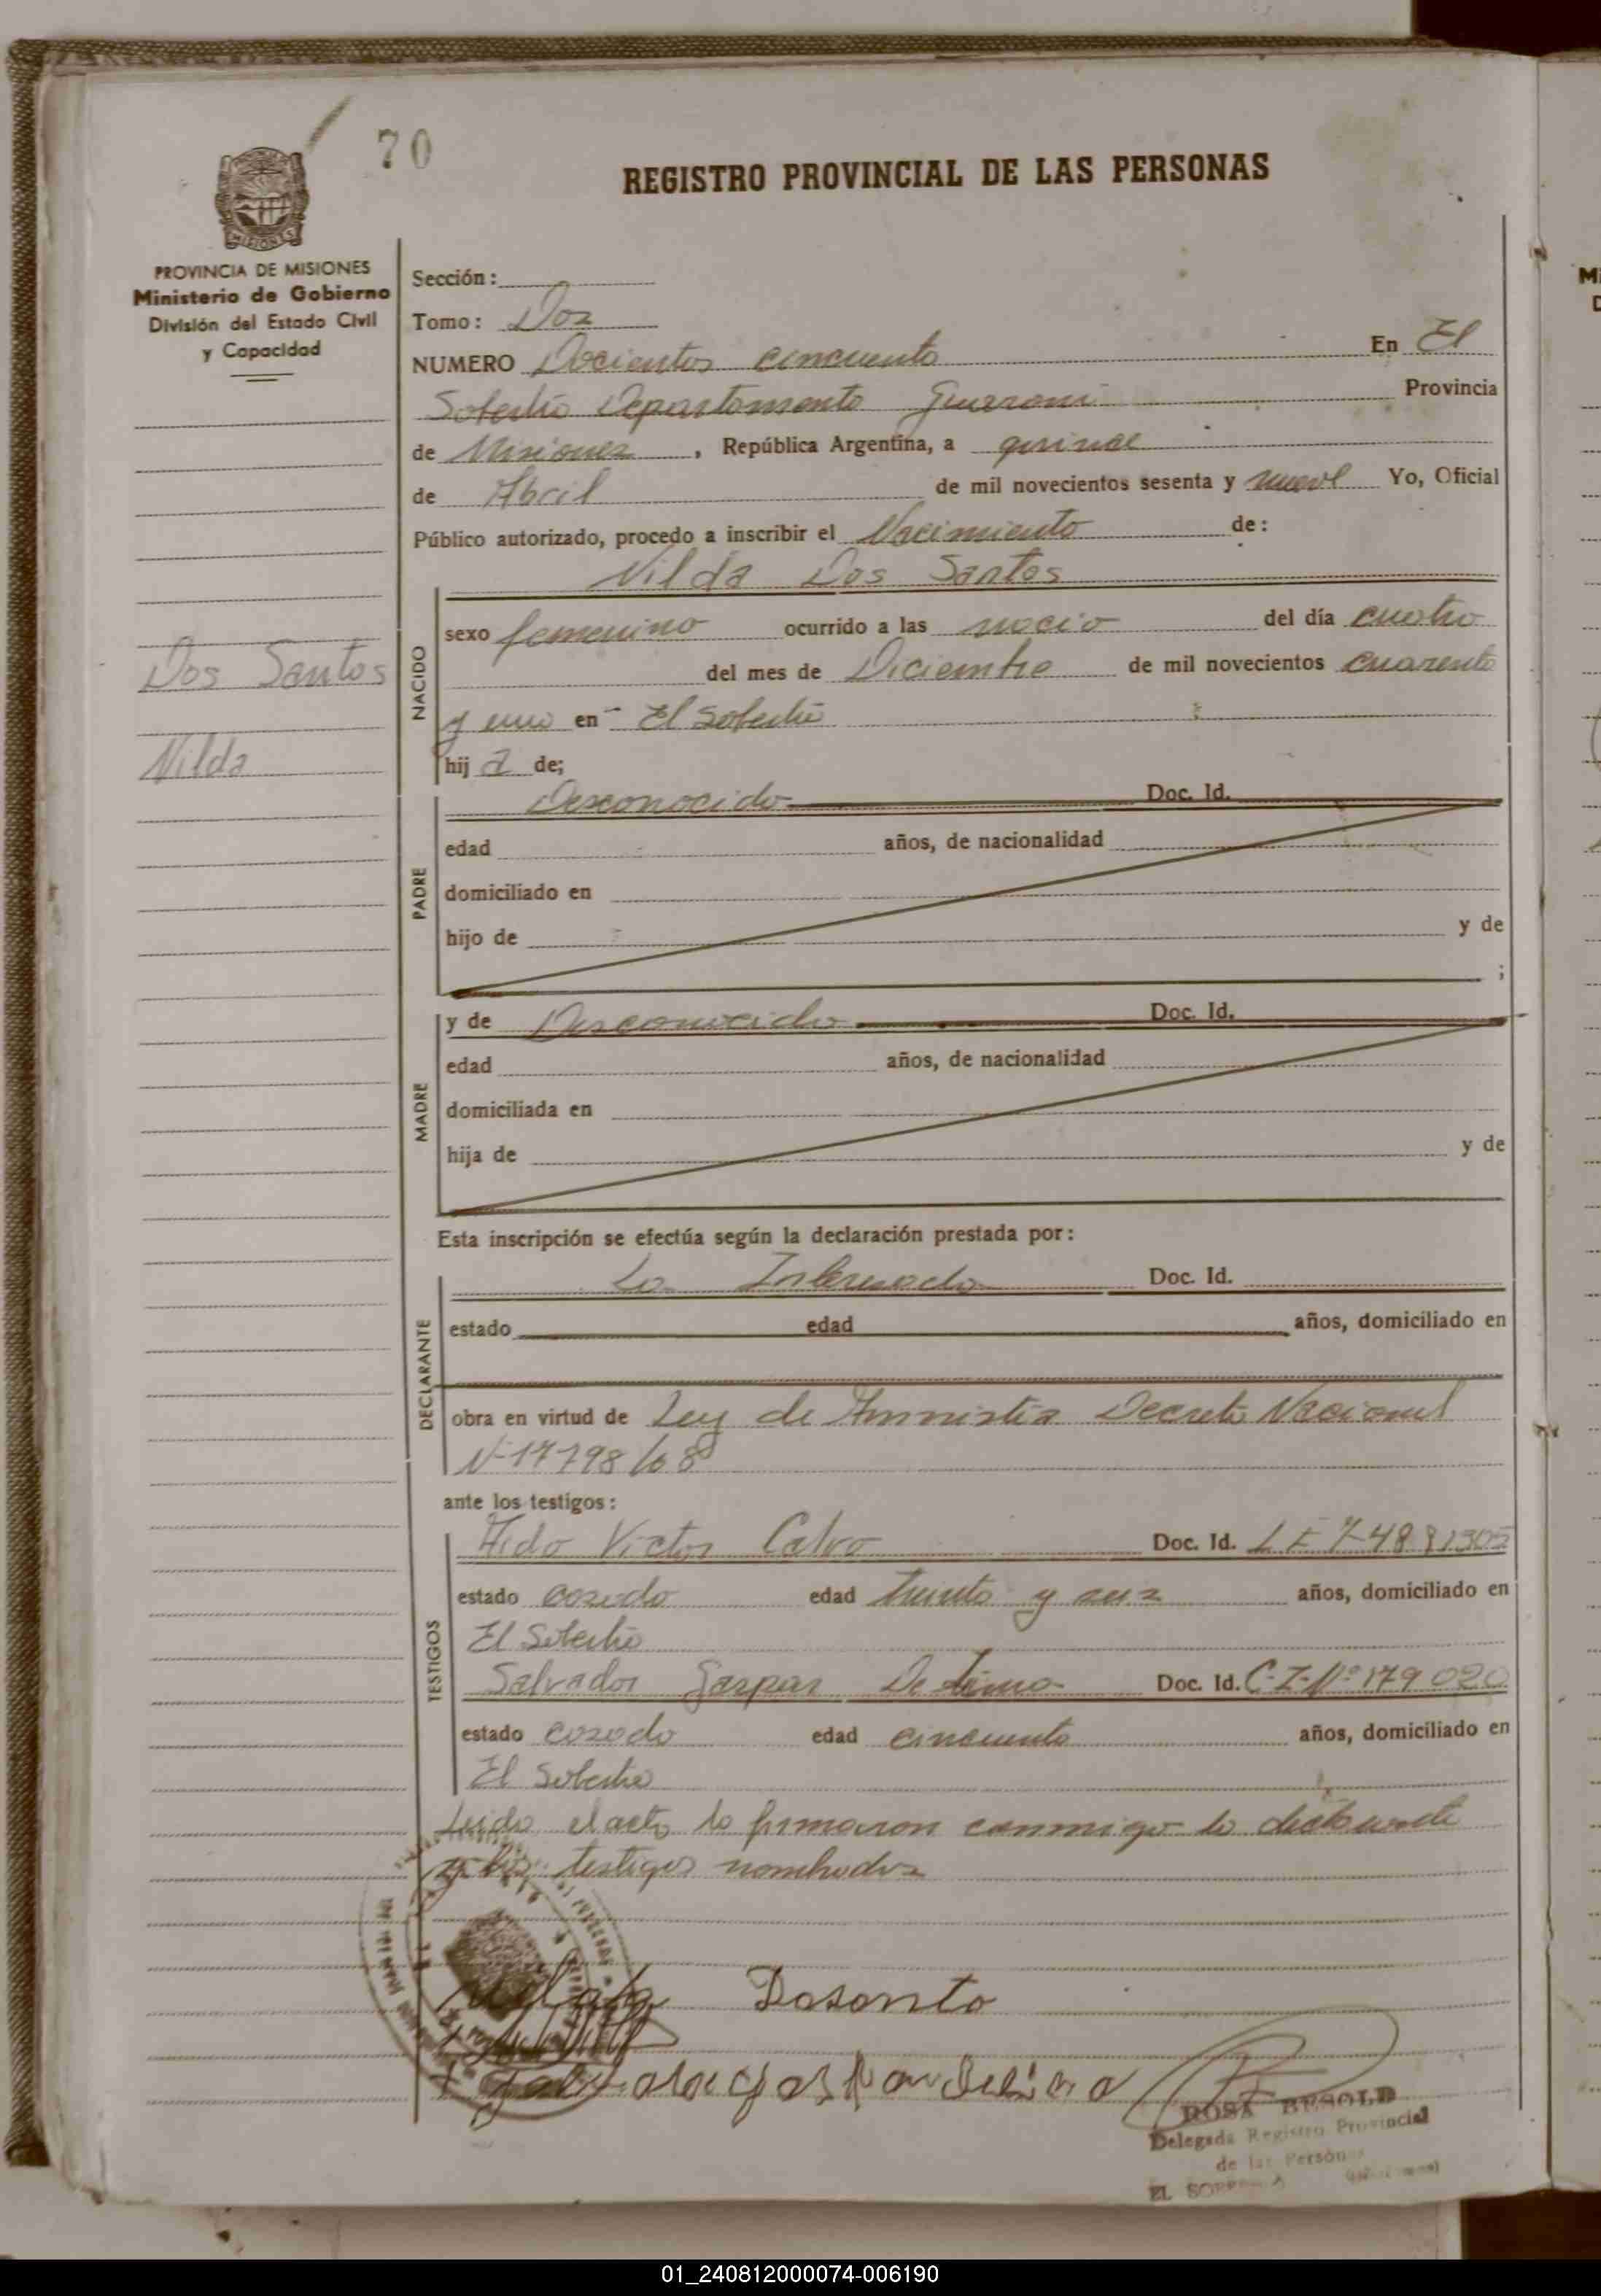 70
REGISTRO PROVINCIAL DE LAS PERSONAS
MISIONES
PROVINCIA DE MISIONES
Ministerio de Gobierno
División del Estado Civil
y Capacidad
Sección:
Tomo: Dos
NUMERO Docientos cincuenta En El
Soberbio Departamento Guarani Provincia
de Misiones, República Argentina, a quince
de Abril de mil novecientos sesenta y nueve Yo, Oficial
Público autorizado, procedo a inscribir el Nacimiento de:
Nilda Dos Santos
Dos Santos
Nilda
NACIDO
sexo femenino ocurrido a las nacio del día cuatro
del mes de Diciembre de mil novecientos cuarenta
y uno en El Soberbio
hija de;
PADRE
Desconocido Doc. Id.
edad años, de nacionalidad
domiciliado en
hijo de y de
;
MADRE
y de Desconocido Doc. Id.
edad años, de nacionalidad
domiciliada en
hija de y de
Esta inscripción se efectúa según la declaración prestada por:
DECLARANTE
La Interesada Doc. Id.
estado edad años, domiciliado en
obra en virtud de Ley de Amnistia Decreto Nacional
Nº 17798/68
ante los testigos:
TESTIGOS
Aido Victor Calvo Doc. Id. L E
estado casado edad treinta y seis años, domiciliado en
El Soberbio
Salvador Gaspar De Lima Doc. Id. C.I.Nº 179 020
estado casado edad cincuenta años, domiciliado en
El Soberbio
Leido el acta la firmaron conmigo
testigos nombrados
Dosanto
ROSA BESOLD
Delegada Registro Provincial
de las Personas
EL SOBERBIO
01_240812000074-006190